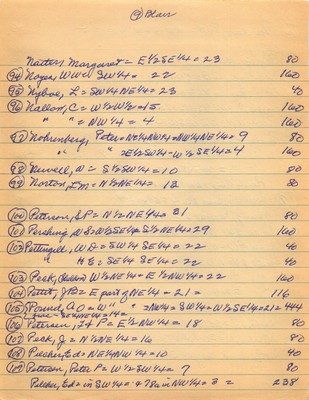 ④ Blair
Natters, Margaret = E½SE¼ = 23 80
(94) Noyes WW = SW¼ = 22 160
(95) Nyboe, L = SW¼NE¼ = 23 40
(96) C = W½W½ = 15 160
" " = NW¼ = 4 160
(97) Nohrenberg, Peter = NE¼NW¼ = NW¼NE¼ = 9 80
" " = E½SW¼ = W½SE¼ = 4 160
(98) Newell, W = S½SW¼ = 10 80
(99) Norton, L M = N½NE¼ = 18 80
(100) Peterson, S P = N½NE¼ = 31 80
(101) Pershing W½SE¼ E½NE¼ = 29 160
(102) Pettengill, W D = SW¼ SE¼ = 22 40
" H E = SE¼ SE¼ = 22 40
(103) Peck, W½NE¼ = E½NW¼ = 22 160
(104) Pettit, J B = E part of NE¼ = 21 = 116
(105) Pound, A O = W½ " = NW¼ = SW¼ = W½SE¼ = 21 = 444
(106) Petersen, L & P = E½NW¼ = 18 80
(107) Peck, J = N½NE¼ = 16 80
(108) Ed = NE¼NW¼ = 10 40
(109) Peterson, Peter P = W½SW¼ = 7 80
Ed = in SW¼ = & 78a in NW¼ = 3 = 238